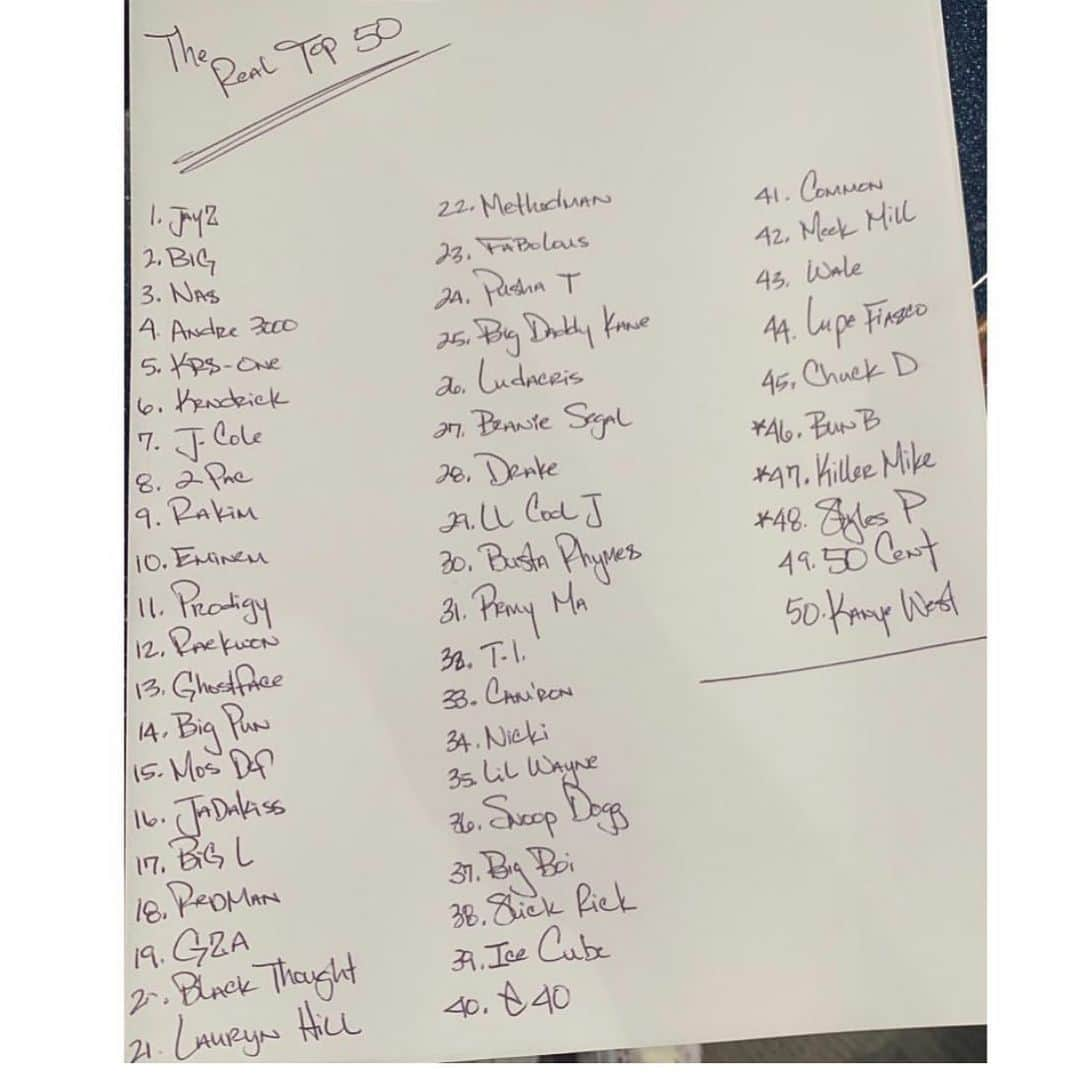 The Real Top 50
1. Jay Z
2. BIG
3. Nas
4. Andre 3000
5. KRS-One
6. Kendrick
7. J. Cole
8. 2 Pac
9. Rakim
10. Eminem
11. Prodigy
12. Raekwon
13. Ghostface
14. Big Pun
15. Mos Def
16. Jadakiss
17. Big L
18. Redman
19. GZA
20. Black Thought
21. Lauryn Hill
22. Methodman
23. Fabolous
24. Pusha T
25. Big Daddy Kane
26. Ludacris
27. Beanie Segal
28. Drake
29. LL Cool J
30. Busta Rhymes
31. Remy Ma
32. T.I.
33. Cam'ron
34. Nicki
35. Lil Wayne
36. Snoop Dogg
37. Big Boi
38. Slick Rick
39. Ice Cube
40. E 40
41. Common
42. Meek Mill
43. Wale
44. Lupe Fiasco
45. Chuck D
*46. Bun B
*47. Killer Mike
*48. Styles P
49. 50 Cent
50. Kanye West